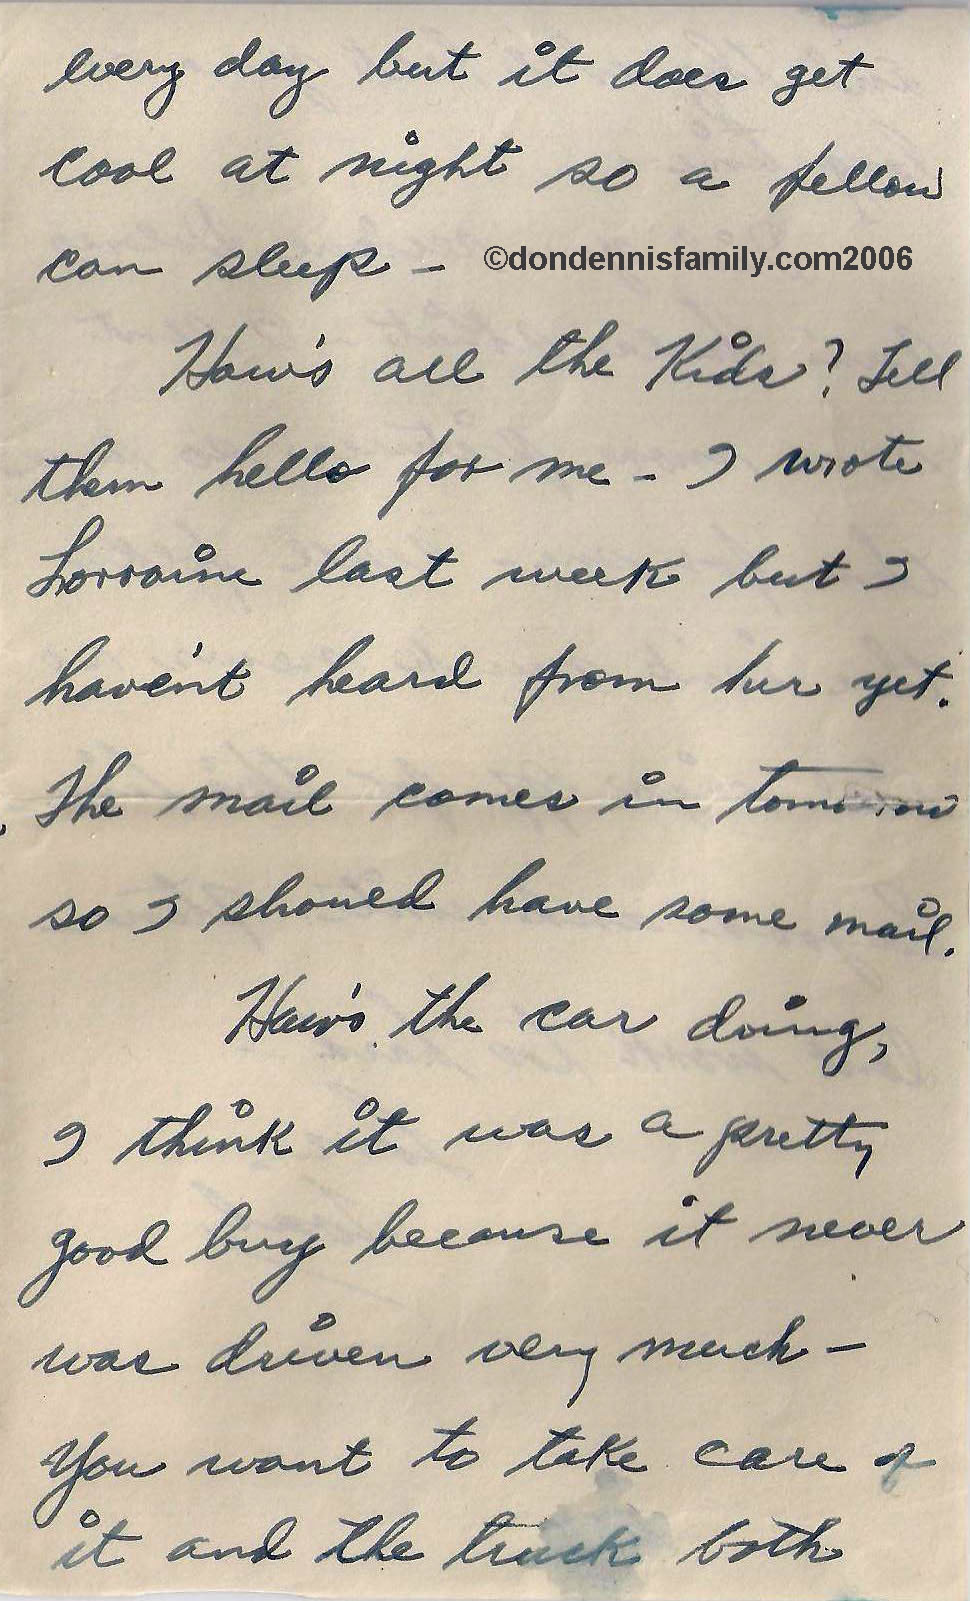 every day but it does get
cool at night so a fellow
can sleep – ©dondennisfamily.com2006
How's all the Kids? Tell
them hello for me – I wrote
Lorraine last week but I
haven't heard from her yet.
The mail comes in tomorrow
so I should have some mail.
How's the car doing,
I think it was a pretty
good buy because it never
was driven very much –
You want to take care of
it and the truck both